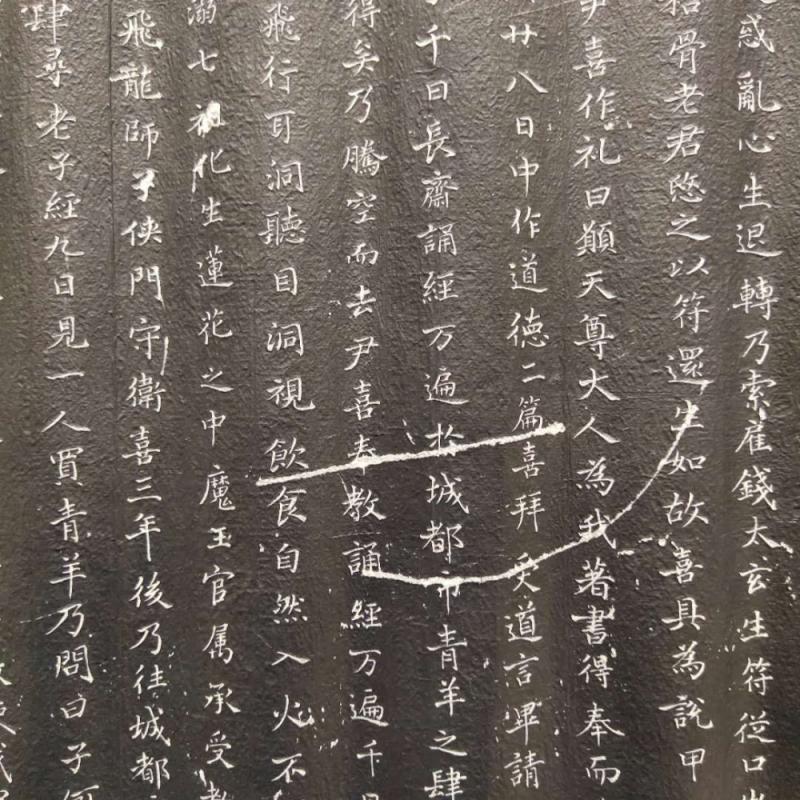 惑亂心生退轉乃索雇錢太玄生符從口出
骨老君愍之以符還生如故喜具為說甲
尹喜作礼曰願天尊大人為我著書得奉而
廿八日中作道德二篇喜拜受道言畢請
千日長齋誦經万遍於城都市青羊之肆
得矣乃騰空而去尹喜奉教誦經万遍千日
飛行耳洞聽目洞視飲食自然入火不
溺七祖化生蓮花之中魔王官属承受教
飛龍師子俠門守衛喜三年後乃往城都
肆尋老子經九日見一人買青羊乃問曰子何